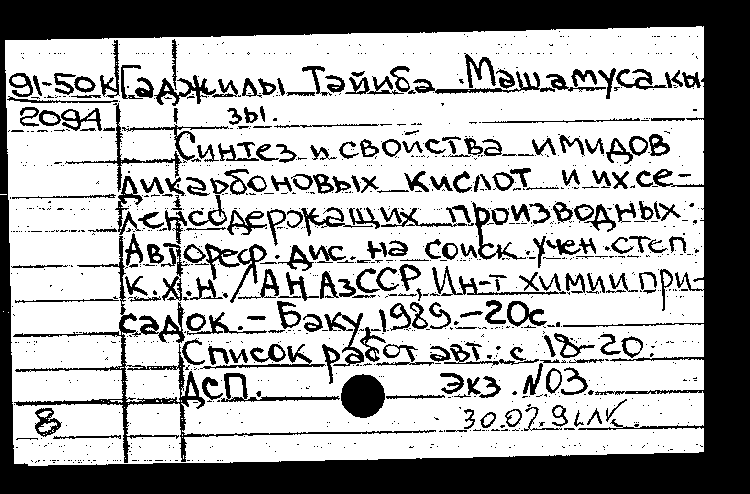 91-50К Гаджилы Тайиба Машамуса кы-
2094 зы.
Синтез и свойства имидов
дикарбоновых кислот и их се-
ленсодержащих производных:
Автореф. дис. на соиск. учен. степ.
к.х.н. / АН АзССР, Ин-т химии при-
садок. - Баку, 1989. - 20с.
Список работ авт.: с 18-20.
ДСП. Экз. №03.
8 30.07.91.